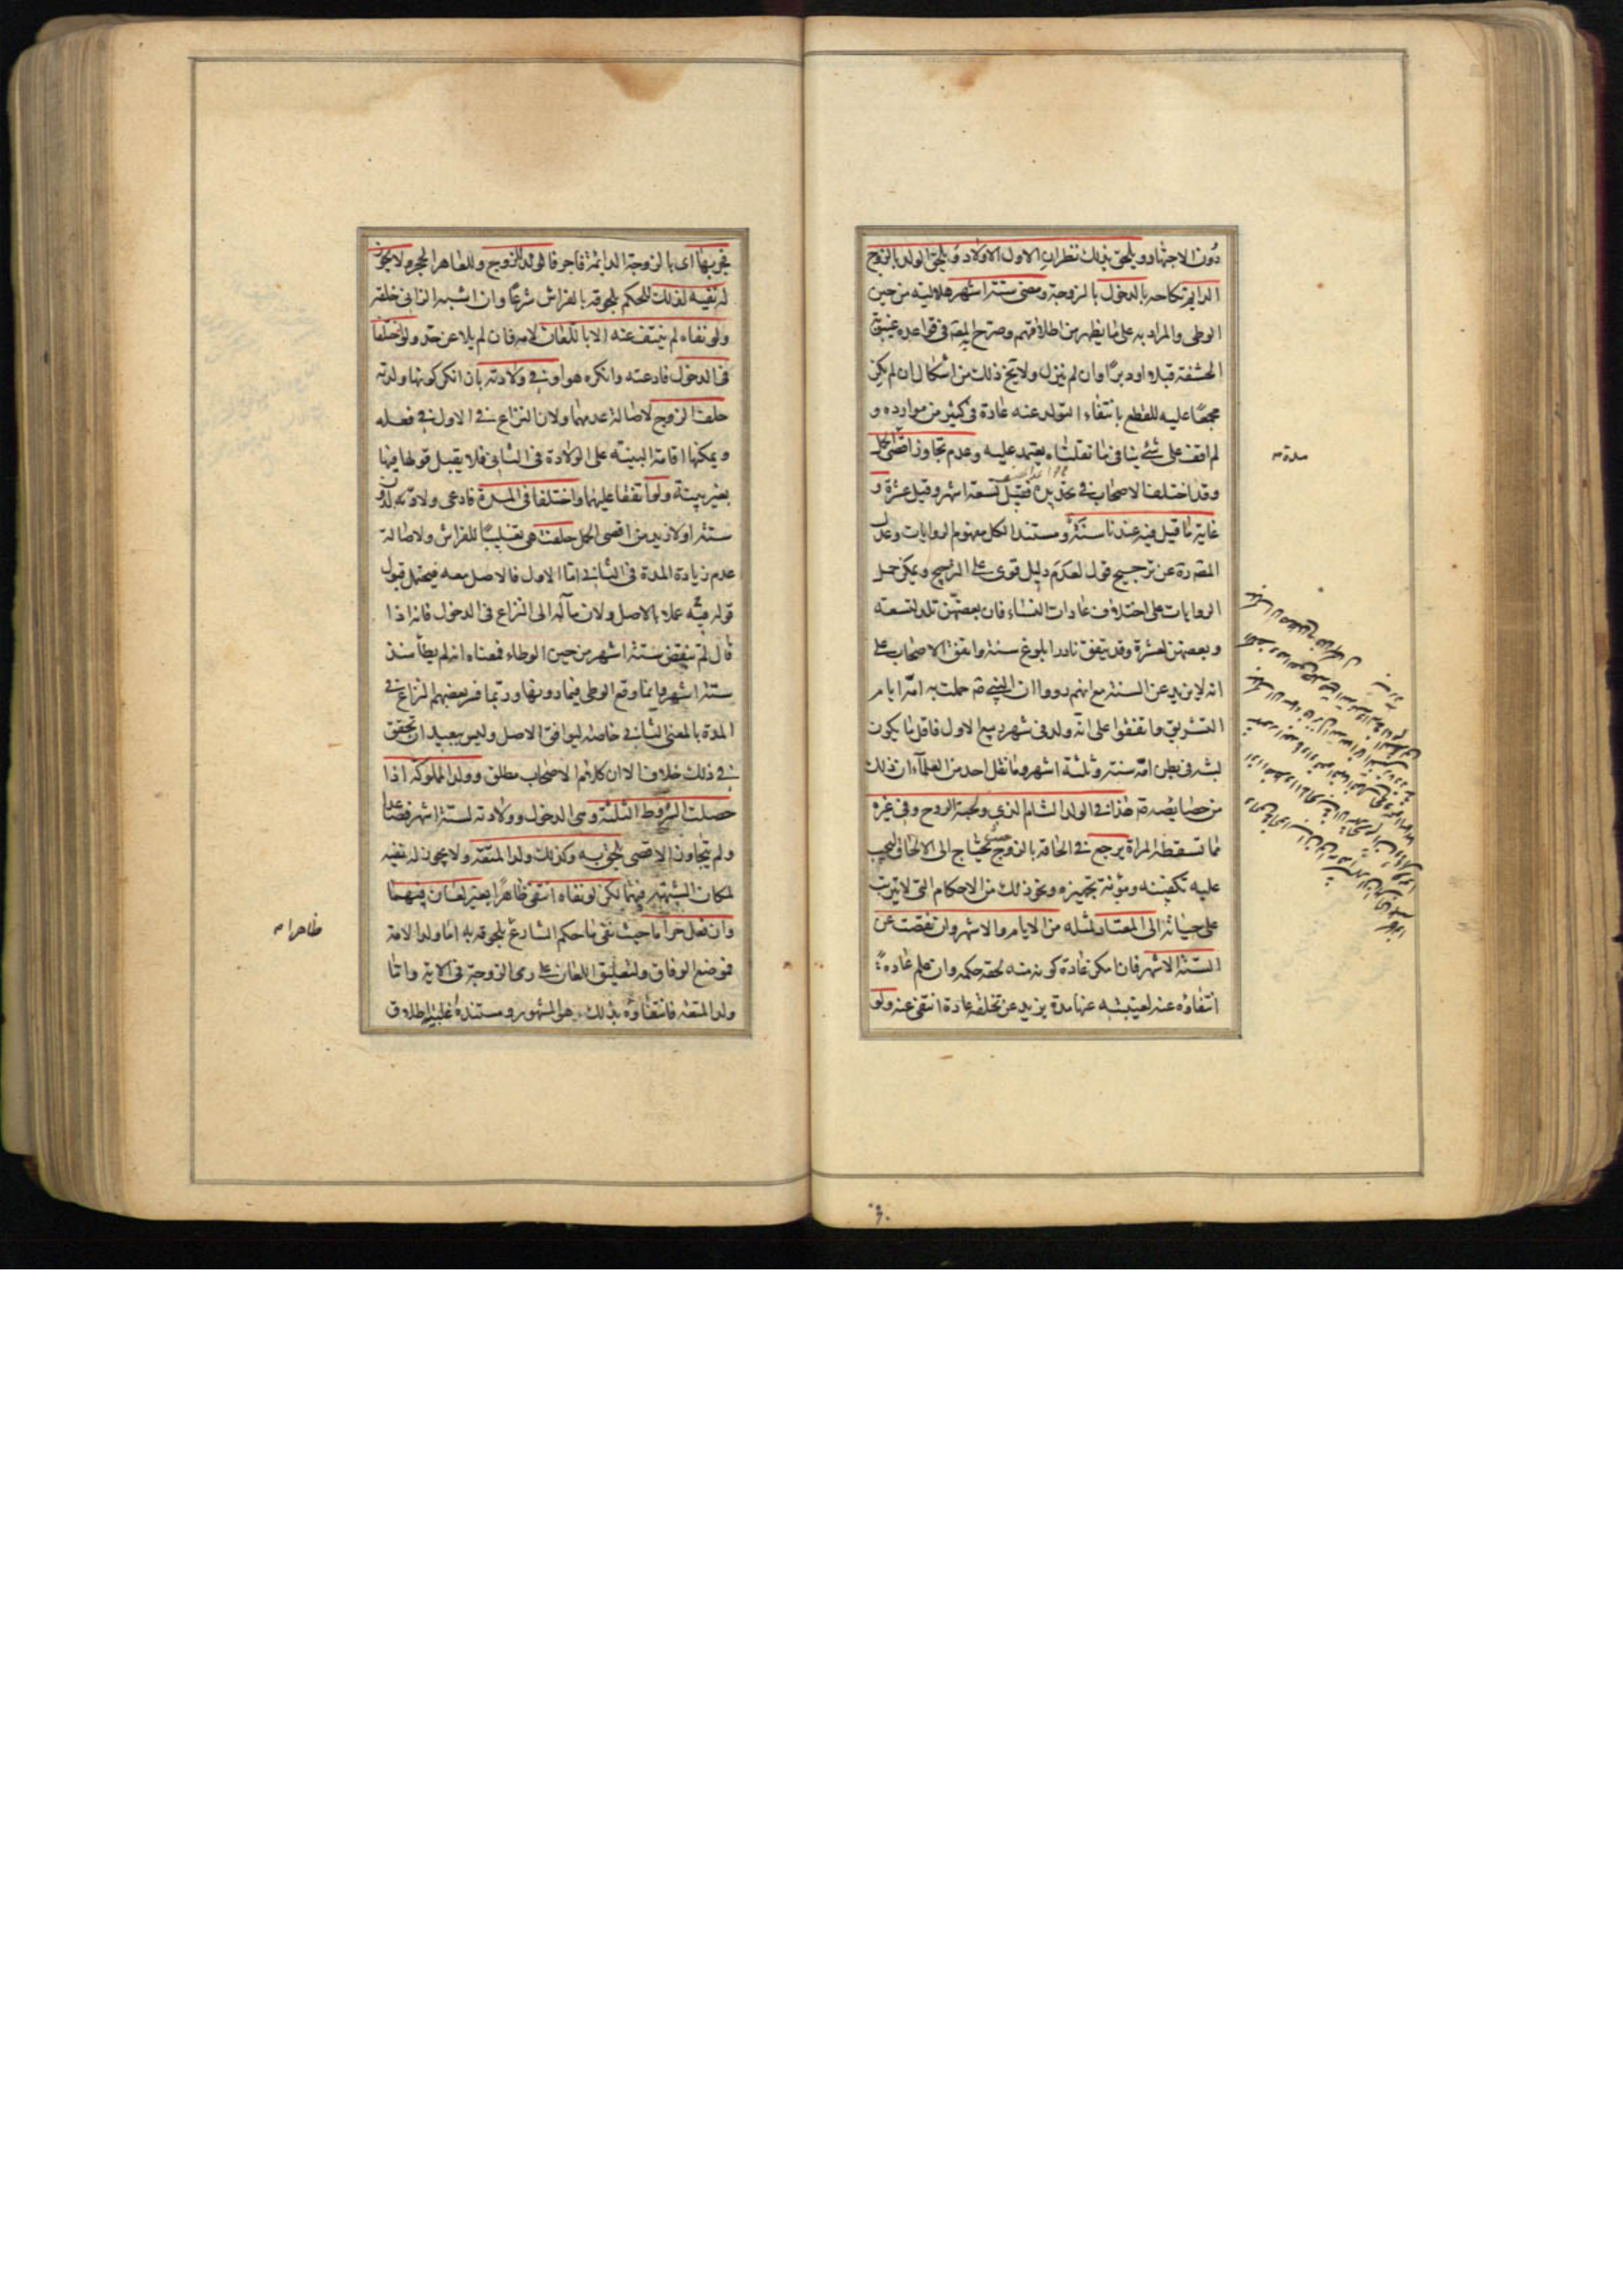 دون الاجتهاد ويلحق بذلك نظران الاول الاولاد ويلحق الولد بالزوج
الدايم نكاحه بالدخول بالزوجة ومضى ستة اشهر هلالية من حين
الوطى والمراد به على ما يظهر من اطلاقهم وصرح المصـ فى قواعده غيبوبة
الحشفة قبلا او دبرا وان لم ينزل ولا يخ ذلك من اشكال ان لم يكن
مجمعا عليه للقطع بانتفاء التولد عنه عادة فى كثير من موارده و
لم اقف على شئ ينافى ما نقلناه يعتمد عليه وعدم تجاوز اقصى الحمل
وقد اختلف الاصحاب فى تحديده فقيل تسعة اشهر وقيل عشرة و
غاية ما قيل فيه عندنا سنة ومستند الكل مفهوم الروايات وعدل
المصـ ره عن ترجيح قول لعدم دليل قوى على الترجيح ويمكن حمل
الروايات على اختلاف عادات النساء فان بعضهن تلد لتسعة
وبعضهن لعشرة وقد يتفق نادرا بلوغ سنة واتفق الاصحاب على
انه لا يزيد عن السنة مع انهم رووا ان النبي صـ حملت به امه ايام
التشريق واتفقوا على انه ولد فى شهر ربيع الاول فاقل ما يكون
لبثه فى بطن امه سنة وثلثة اشهر وما نقل احد من العلماء ان ذلك
من خصايصه صـ هذا فى الولد التام الذى ولجته الروح وفى غيره
مما تسقطه المراة يرجع فى الحاقه بالزوج حيث يحتاج الى الالحاق ليجب
عليه تكفينه ومؤنة تجهيزه ونحو ذلك من الاحكام التى لا يترتب
على حياته الى المعتاد لمثله من الايام والاشهر وان نقصت عن
الستة الاشهر فان امكن عادة كونه منه لحقه حكمه وان علم عادة
انتفاؤه عنه لغيبته عنها مدة يزيد عن تخلقه عادة انتفى عنه ولو
مدة
فجر بها اى بالزوجة الدائمة فاجر فالولد للزوج وللعاهر الحجر ولا يجوز
له نفيه لذلك للحكم بلحوقه بالفراش شرعا وان اشبه الزانى خلقة
ولو نفاه لم ينتف عنه الا باللعان لامه فان لم يلاعن حد ولو اختلفا
فى الدخول فادعته وانكره هو او فى ولادته بان انكر كونها ولدته
حلف الزوج لاصالة عدمهما ولان النزاع فى الاول فى فعله
ويمكنها اقامة البينة على الولادة فى الثانى فلا يقبل قولها فيها
بغير بينة ولو اتفقا عليهما واختلفا فى المدة فادعى ولادته لدون
ستة او لازيد من اقصى الحمل حلفت هى تغليبا للفراش ولاصالة
عدم زيادة المدة فى الثانى اما الاول فالاصل معه فيحتمل قبول
قوله فيه عملا بالاصل ولان مآله الى النزاع فى الدخول فانه اذا
قال لم ينقض ستة اشهر من حين الوطاء فمعناه انه لم يطأ منذ
ستة اشهر وانما وقع الوطى فيما دونها وربما فسر بعضهم النزاع فى
المدة بالمعنى الثانى خاصة ليوافق الاصل وليس ببعيد ان تحقق
فى ذلك خلاف الا ان كلام الاصحاب مطلق وولد المملوكة اذا
حصلت الشروط الثلثة وهى الدخول وولادته لستة اشهر فصاعدا
ولم يتجاوز الاقصى يلحق به وكذلك ولد المتعة ولا يجوز له نفيه
لمكان الشبهة فيهما لكن لو نفاه انتفى ظاهرا بغير لعان فيهما
وان فعل حراما حيث نفى ما حكم الشارع بلحوقه به اما ولد الامة
فموضع الوفاق ولتعليق اللعان على رمى الزوجة فى الاية واما
ولد المتعة فانتفاؤه بذلك هو المشهور ومستنده غلبة اطلاق
ظاهرا